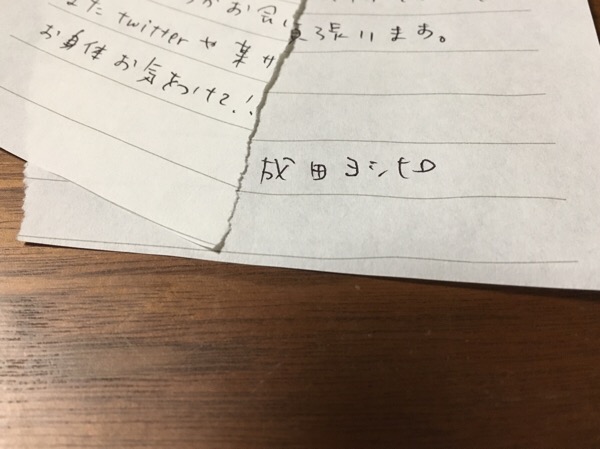 お会い
またtwitterや葉サ
お身体お気をつけて!!
張ります。
成田ヨシヒロ